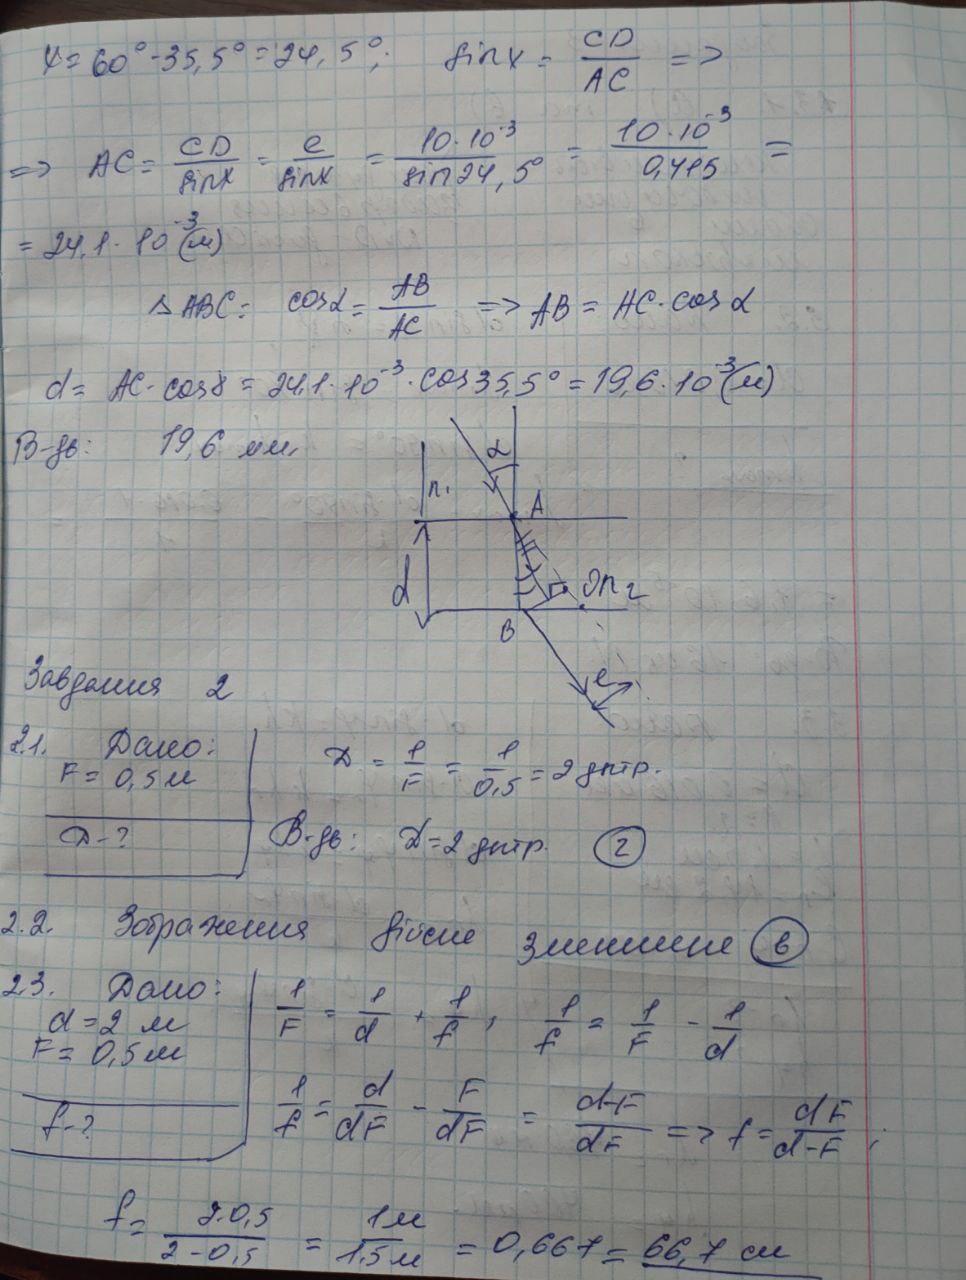 γ = 60° - 35,5° = 24,5°; sin γ = CD/AC =>
=> AC = CD/sin γ = e/sin γ = 10·10⁻³/sin 24,5° = 10·10⁻³/0,415 =
= 24,1·10⁻³ (м)
△ABC: cos α = AB/AC => AB = AC·cos α
d = AC·cos γ = 24,1·10⁻³·cos 35,5° = 19,6·10⁻³ (м)
В-дь: 19,6 мм.
α
n₁
A
d
D n₂
B
e
Завдання 2
2.1. Дано:
F = 0,5 м
D - ?
D = 1/F = 1/0,5 = 2 дптр.
В-дь: D = 2 дптр. 2
2.2. Зображення дійсне зменшене в
2.3. Дано:
d = 2 м
F = 0,5 м
f - ?
1/F = 1/d + 1/f; 1/f = 1/F - 1/d
1/f = d/dF - F/dF = d-F/dF => f = dF/d-F;
f = 2·0,5/2-0,5 = 1м/1,5м = 0,667 = 66,7 см